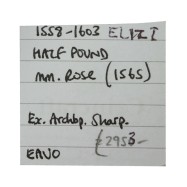 1558-1603 ELIZ I
HALF POUND
mm. Rose (1565)
Ex. Archbp. Sharp.
£2953-